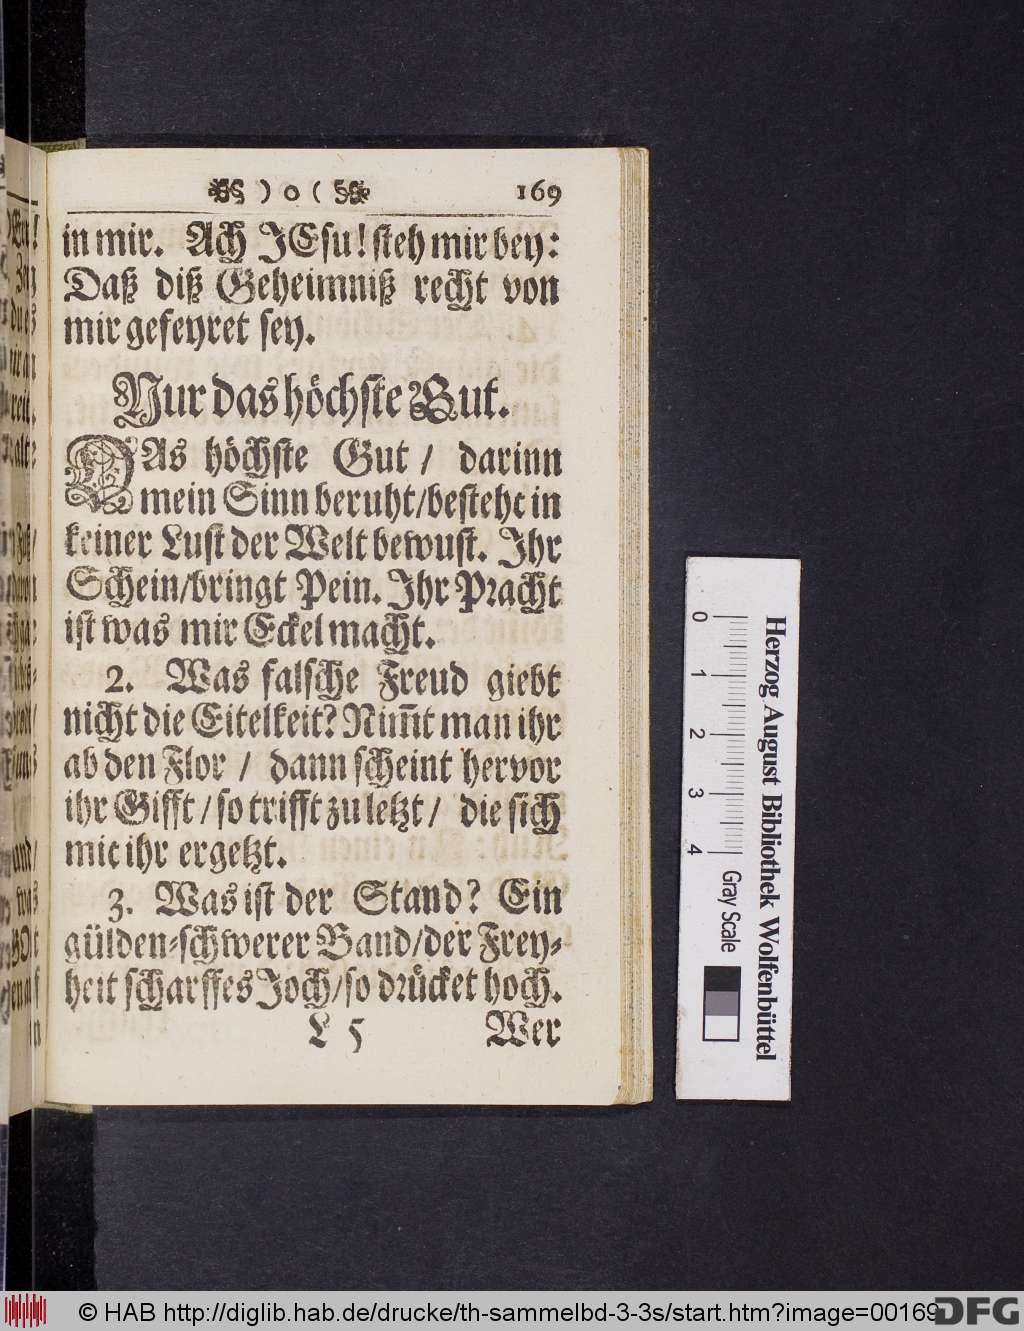 ) o ( 169
in mir. Ach JEsu! steh mir bey:
Daß diß Geheimniß recht von
mir gefeyret sey.
Nur das höchste Gut.
DAs höchste Gut / darinn
mein Sinn beruht/besteht in
keiner Lust der Welt bewust. Ihr
Schein/bringt Pein. Ihr Pracht
ist was mir Eckel macht.
2. Was falsche Freud giebt
nicht die Eitelkeit? Nim̄t man ihr
ab den Flor / dann scheint hervor
ihr Gifft / so trifft zu letzt / die sich
mit ihr ergetzt.
3. Was ist der Stand? Ein
gülden-schwerer Band/der Frey-
heit scharffes Joch/so drücket hoch.
L 5 Wer
0 1 2 3 4 Gray Scale
Herzog August Bibliothek Wolfenbüttel
© HAB http://diglib.hab.de/drucke/th-sammelbd-3-3s/start.htm?image=00169
DFG